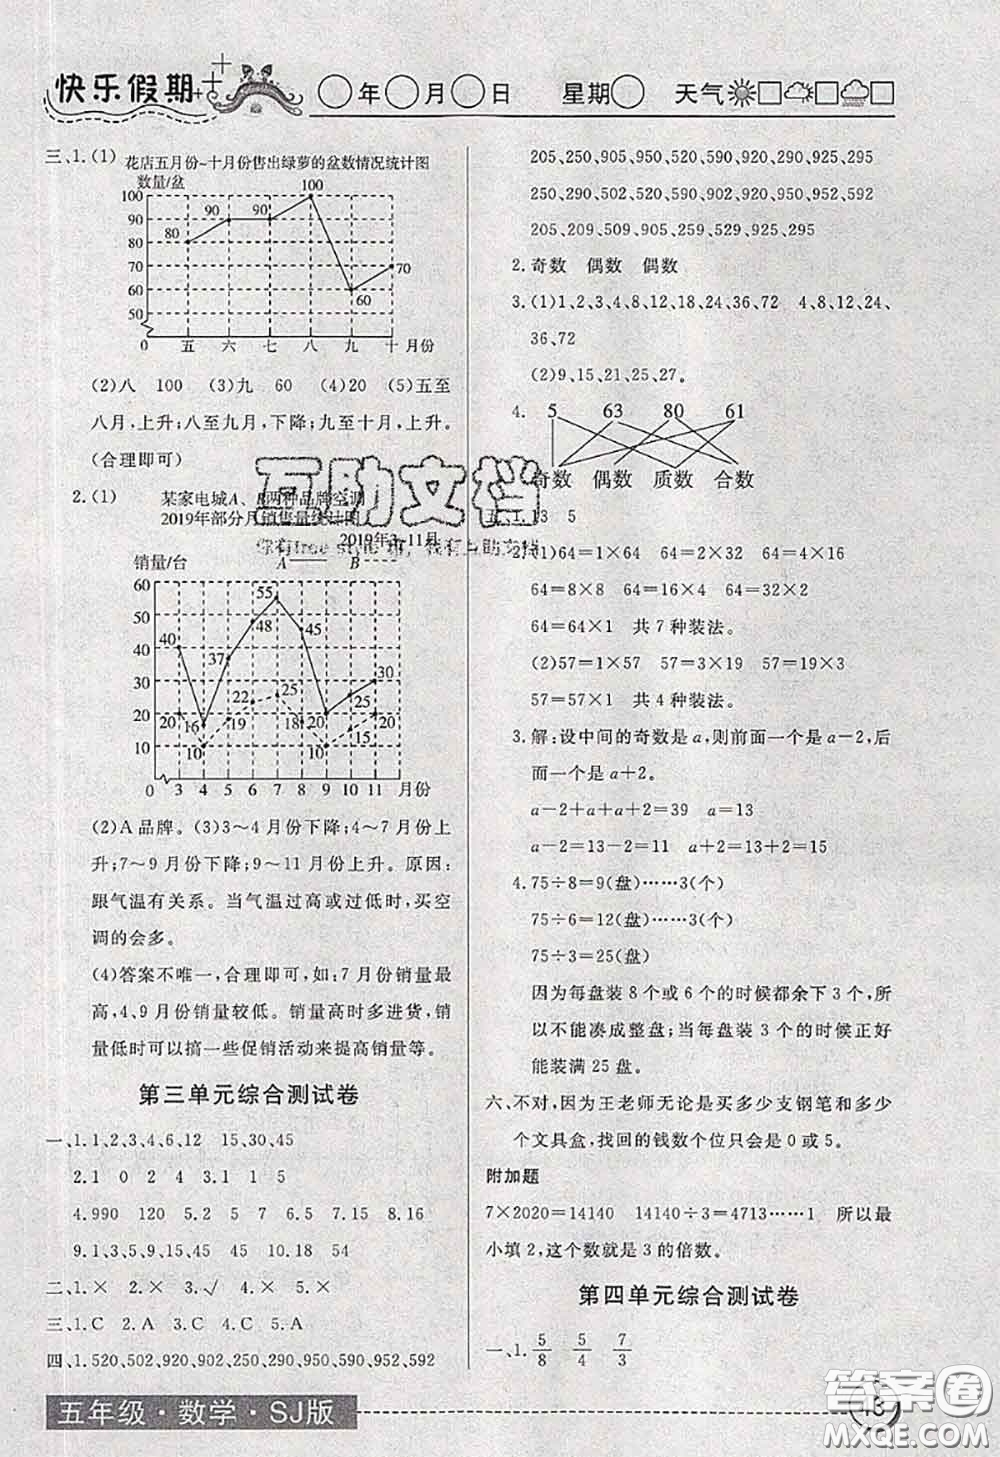 快乐假期
年 月 日 星期 天气
三、1.(1) 花店五月份~十月份售出绿萝的盆数情况统计图
数量/盆
100
90
80
70
60
50
0
80 90 90 100 60 70
五 六 七 八 九 十 月份
(2)八 100 (3)九 60 (4)20 (5)五至
八月,上升;八至九月,下降;九至十月,上升。
(合理即可)
2.(1) 某家电城A、B两种品牌空调
2019年部分月销售量统计图
2019年 11月
销量/台 A B
60
50
40
30
20
10
0
40 16 37 48 55 45 20 25 30
20 10 19 22 25 18 10 15 20
3 4 5 6 7 8 9 10 11 月份
(2)A品牌。(3)3～4月份下降;4～7月份上
升;7～9月份下降;9～11月份上升。原因:
跟气温有关系。当气温过高或过低时,买空
调的会多。
(4)答案不唯一,合理即可,如:7月份销量最
高,4、9月份销量较低。销量高时多进货,销
量低时可以搞一些促销活动来提高销量等。
第三单元综合测试卷
一、1.1、2、3、4、6、12 15、30、45
2.1 0 2 4 3.1 1 5
4.990 120 5.2 6.7 7.15 8.16
9.1、3、5、9、15、45 45 10.18 54
二、1.× 2.× 3.√ 4.× 5.×
三、1.C 2.A 3.C 4.C 5.A
四、1.520、502、920、902、250、290、950、590、592
205、250、905、950、520、590、902、920、592
250、290、502、520、590、902、920、950、592
205、209、509、905、259、529、925、295
2.奇数 偶数 偶数
3.(1)1、2、3、4、8、12、18、24、36、72 4、8、12、24、
36、72
(2)9、15、21、25、27。
4. 5 63 80 61
奇数 偶数 质数 合数
五、1.13 5
2.(1)64=1×64 64=2×32 64=4×16
64=8×8 64=16×4 64=32×2
64=64×1 共7种装法。
(2)57=1×57 57=3×19 57=19×3
57=57×1 共4种装法。
3.解:设中间的奇数是a,则前面一个是a-2,后
面一个是a+2。
a-2+a+a+2=39 a=13
a-2=13-2=11 a+2=13+2=15
4.75÷8=9(盘)……3(个)
75÷6=12(盘)……3(个)
75÷3=25(盘)
因为每盘装8个或6个的时候都余下3个,所
以不能凑成整盘;当每盘装3个的时候正好
能装满25盘。
六、不对,因为王老师无论是买多少支钢笔和多少
个文具盒,找回的钱数个位只会是0或5。
附加题
7×2020=14140 14140÷3=4713……1 所以最
小填2,这个数就是3的倍数。
第四单元综合测试卷
一、1. 5/8 5/4 7/3
五年级·数学·SJ版
13
互助文档
答案圈
MXQE.COM